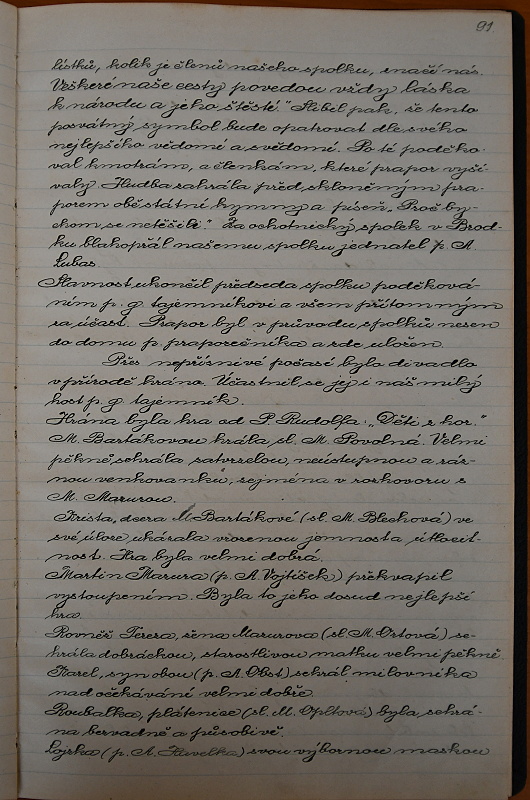 91
lístků, kolik je členů našeho spolku, značí nás.
Veškeré naše cesty povedou vždy láska
k národu a jeho štěstí." Slíbil pak, že tento
posvátný symbol bude opatrovat dle svého
nejlepšího vědomí a svědomí. Po té poděko-
val kmotrám, a členkám, které prapor vyší-
valy. Hudba zahrála před skloněným pra-
porem obě státní hymny a píseň „Proč by-
chom se netěšili." Za ochotnický spolek v Brod-
ku blahopřál našemu spolku jednatel p. A.
Lubas.
Slavnost ukončil předseda spolku poděková-
ním p. g. tajemníkovi a všem přítomným
za účast. Prapor byl v průvodu spolků nesen
do domu p. praporečníka a zde uložen.
Přes nepříznivé počasí bylo divadlo
v přírodě hráno. Účastnil se jej i náš milý
host p. g. tajemník.
Hrána byla hra od P. Rudolfa: „Děti z hor."
M. Bartákovou hrála sl. M. Povolná. Velmi
pěkně, sehrála zatvrzelou, neústupnou a ráz-
nou venkovanku, zejména v rozhovoru s
M. Marurou.
Krista, dcera M. Bartákové (sl. M. Blechová) ve
své úloze ukázala vrozenou jemnost a útlocit-
nost. Hra byla velmi dobrá.
Martin Marura (p. A. Vojtíšek) překvapil
vystoupením. Byla to jeho dosud nejlepší
hra.
Rovněž Tereza, žena Marurova (sl. M. Ortová) se-
hrála dobráckou, starostlivou matku velmi pěkně.
Karel, syn obou (p. A. Obst) sehrál milovníka
nad očekávání velmi dobře.
Roubalka, plátenice (sl. M. Opltová) byla sehrá-
na bezvadně a působivě.
Lojzka (p. A. Havelka) svou výbornou maskou